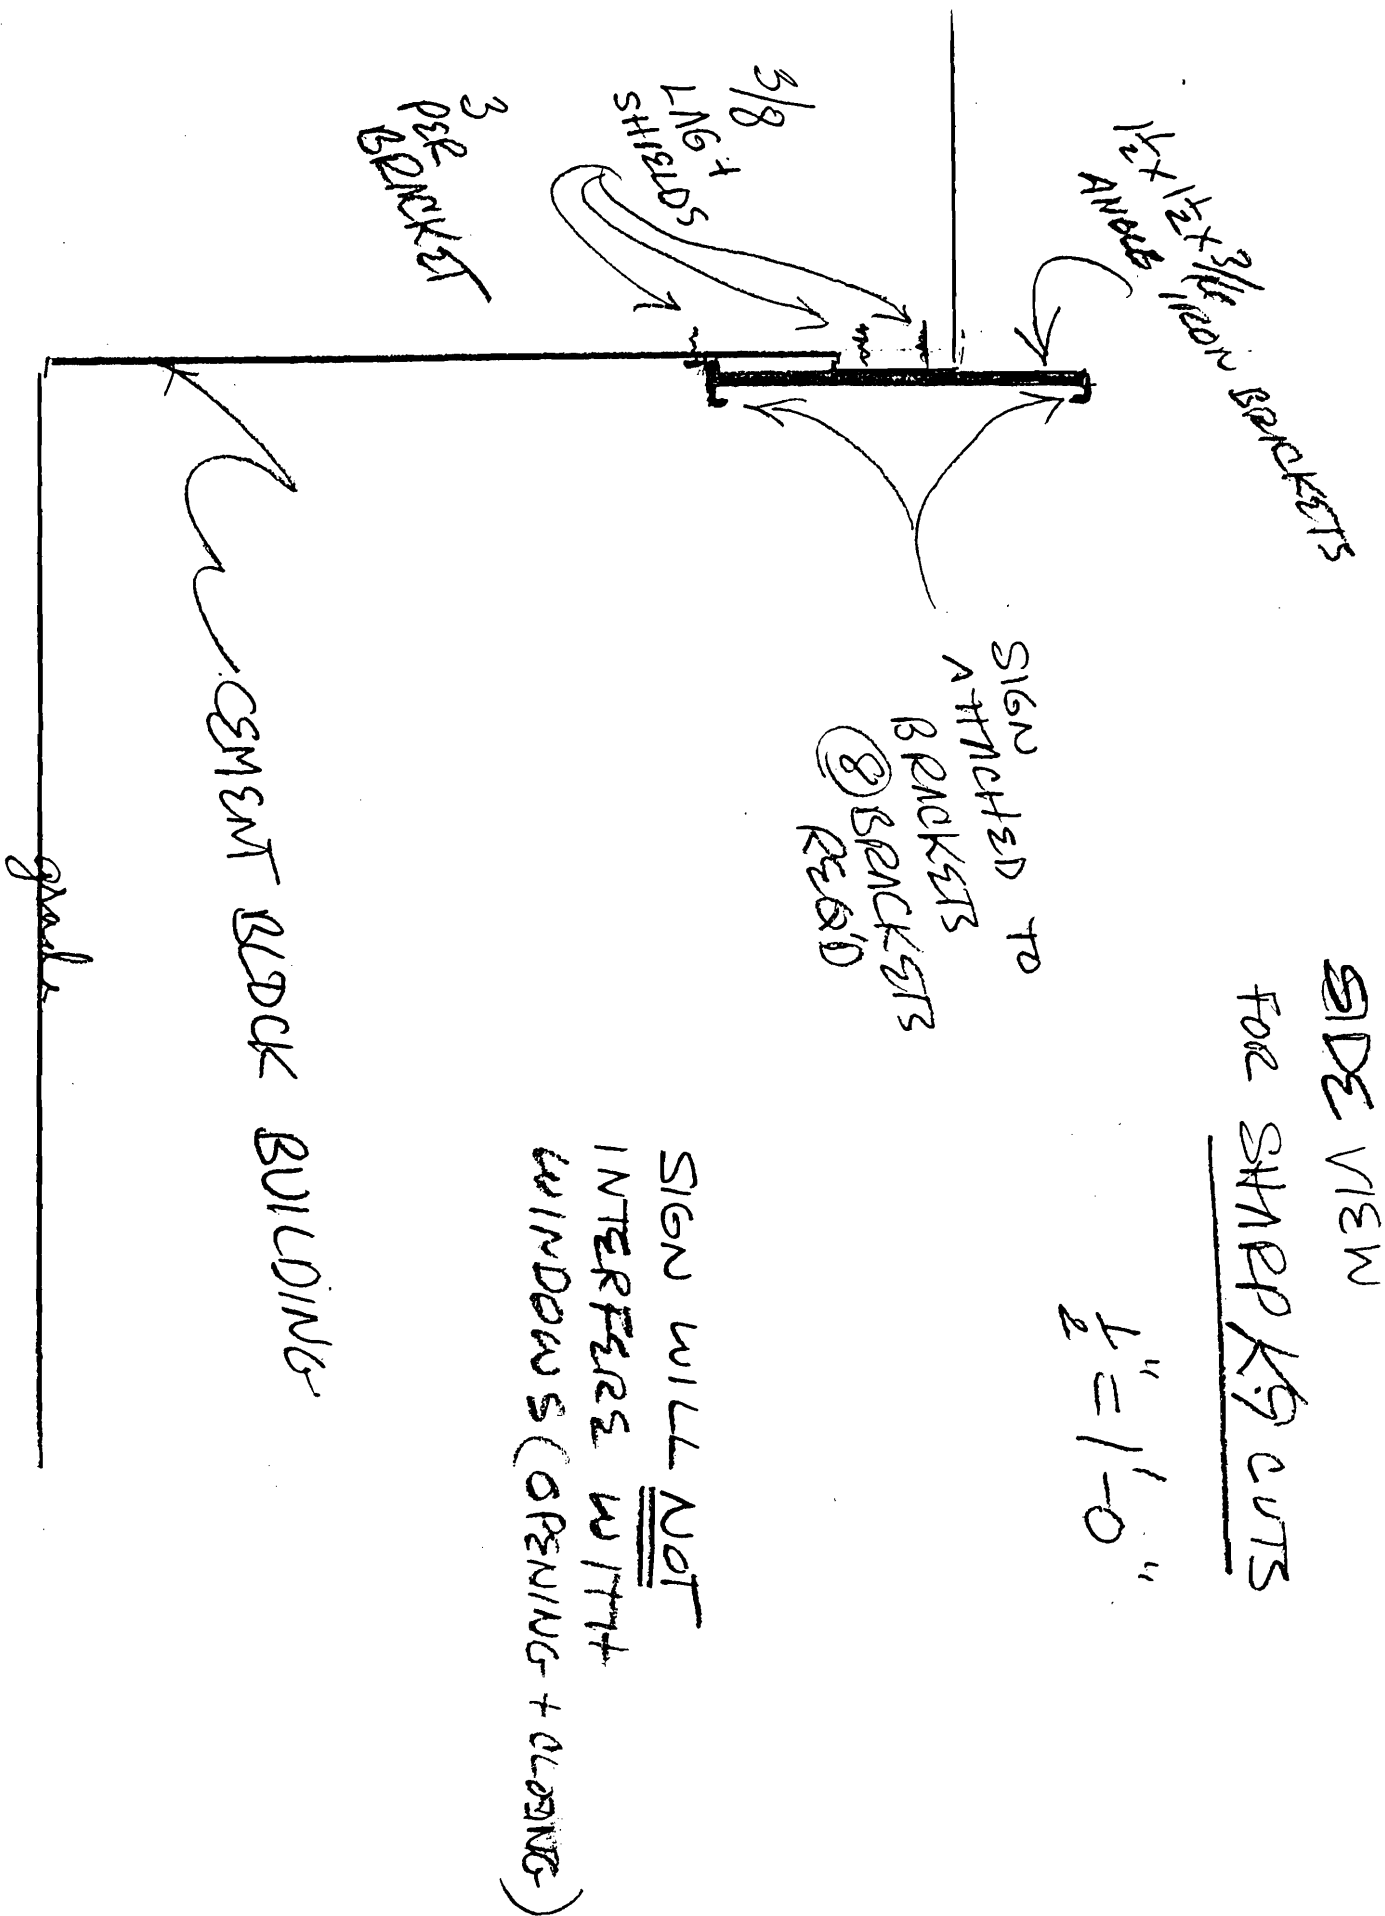 SIDE VIEW
FOR SHARP K9 CUTS
1/2" = 1'-0"
1 1/2 x 1 1/2 x 3/16
ANGLE IRON BRACKETS
3/8
LAG +
SHIELDS
3
PER
BRACKET
SIGN
ATTACHED TO
BRACKETS
8 BRACKETS
REQ'D
SIGN WILL NOT
INTERFERE WITH
WINDOWS (OPENING + CLOSING)
CEMENT BLOCK BUILDING
grade